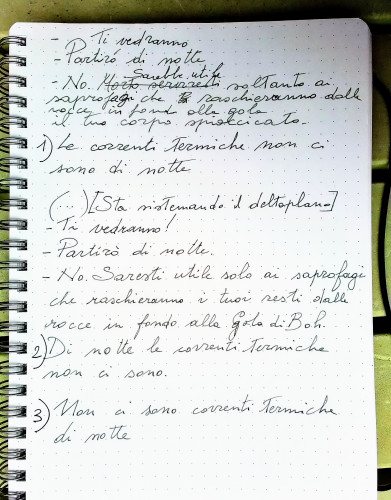 - Ti vedranno
- Partirò di notte
Sarebbe utile
- No. Morto serviresti soltanto ai
saprofagi che ti raschieranno dalle
rocce in fondo alla gola
il tuo corpo spiaccicato.
1) Le correnti termiche non ci
sono di notte
(...) [Sta sistemando il deltaplano]
- Ti vedranno!
- Partirò di notte.
- No. Saresti utile solo ai saprofagi
che raschieranno i tuoi resti dalle
rocce in fondo alla Gola di Boh.
2) Di notte le correnti termiche
non ci sono.
3) Non ci sono correnti termiche
di notte